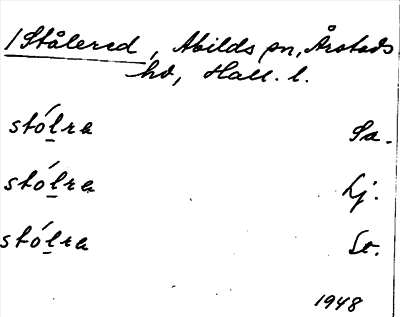 /Stålered, Abilds sn, Årstads
hd, Hall. l.
stó̱lra Sa.
stó̱lra Lj.
stó̱lra St.
1948